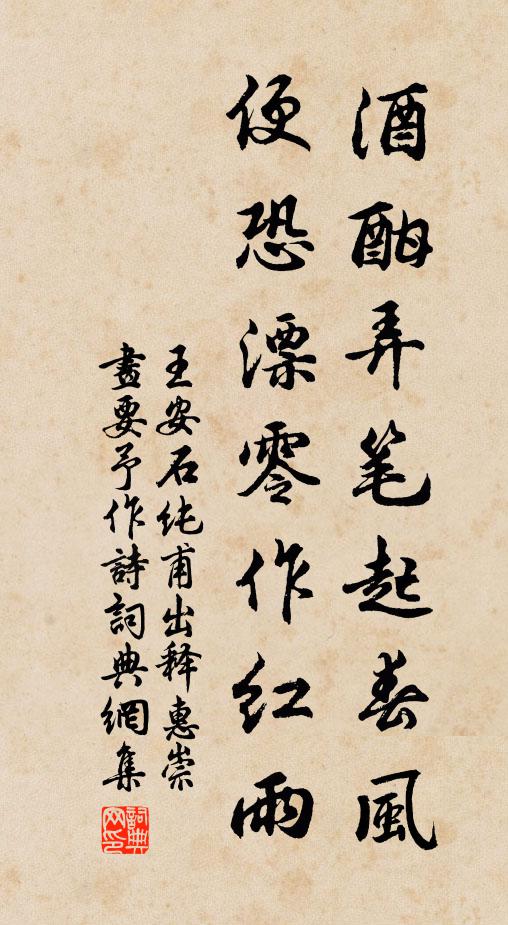 酒酣弄笔起春風
便恐漂零作红雨
王安石纯甫出释惠崇
畫要予作詩詞典網集
詞典网印